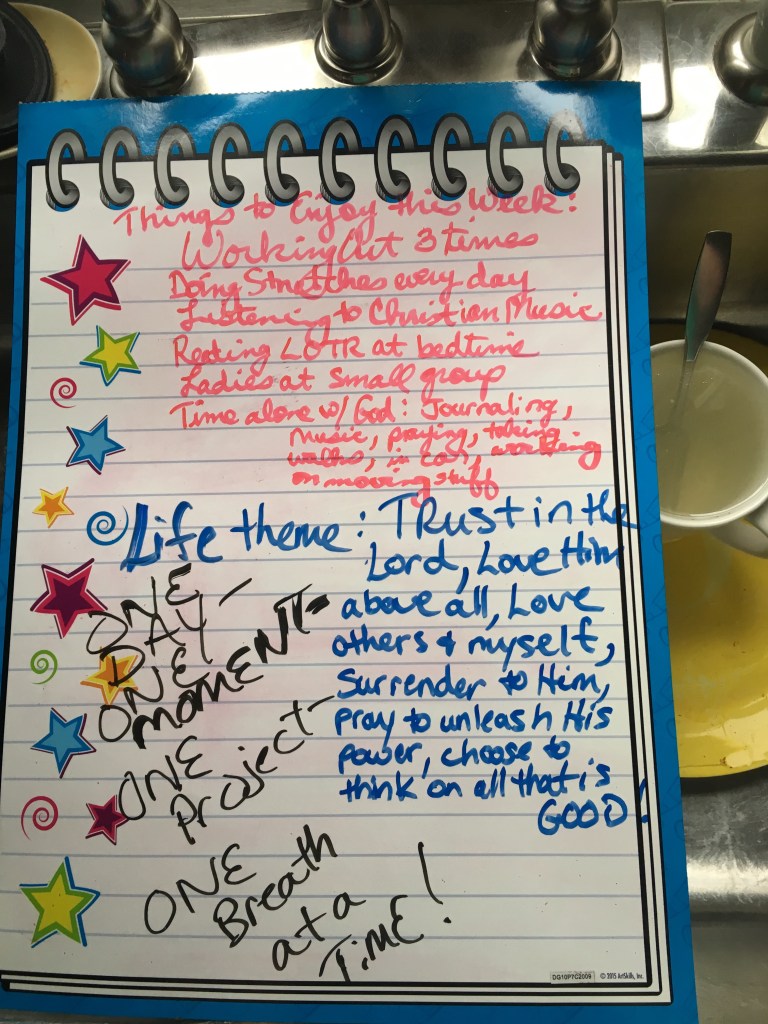 Things to Enjoy this Week:
Working Out 3 times
Doing Stretches every day
Listening to Christian Music
Reading LOTR at bedtime
Ladies at small group
Time alone w/ God: Journaling,
music, praying, taking
walks, in car, working
on moving stuff
Life theme: TRust in the
Lord, Love Him
above all, Love
others & myself,
Surrender to Him,
pray to unleash His
power, choose to
think on all that is
GOOD!
ONE
DAY-
ONE
MOMENT-
ONE
Project-
ONE
Breath
at a
TIME!
DG10PTC2009 © 2015 ArtSkills, Inc.